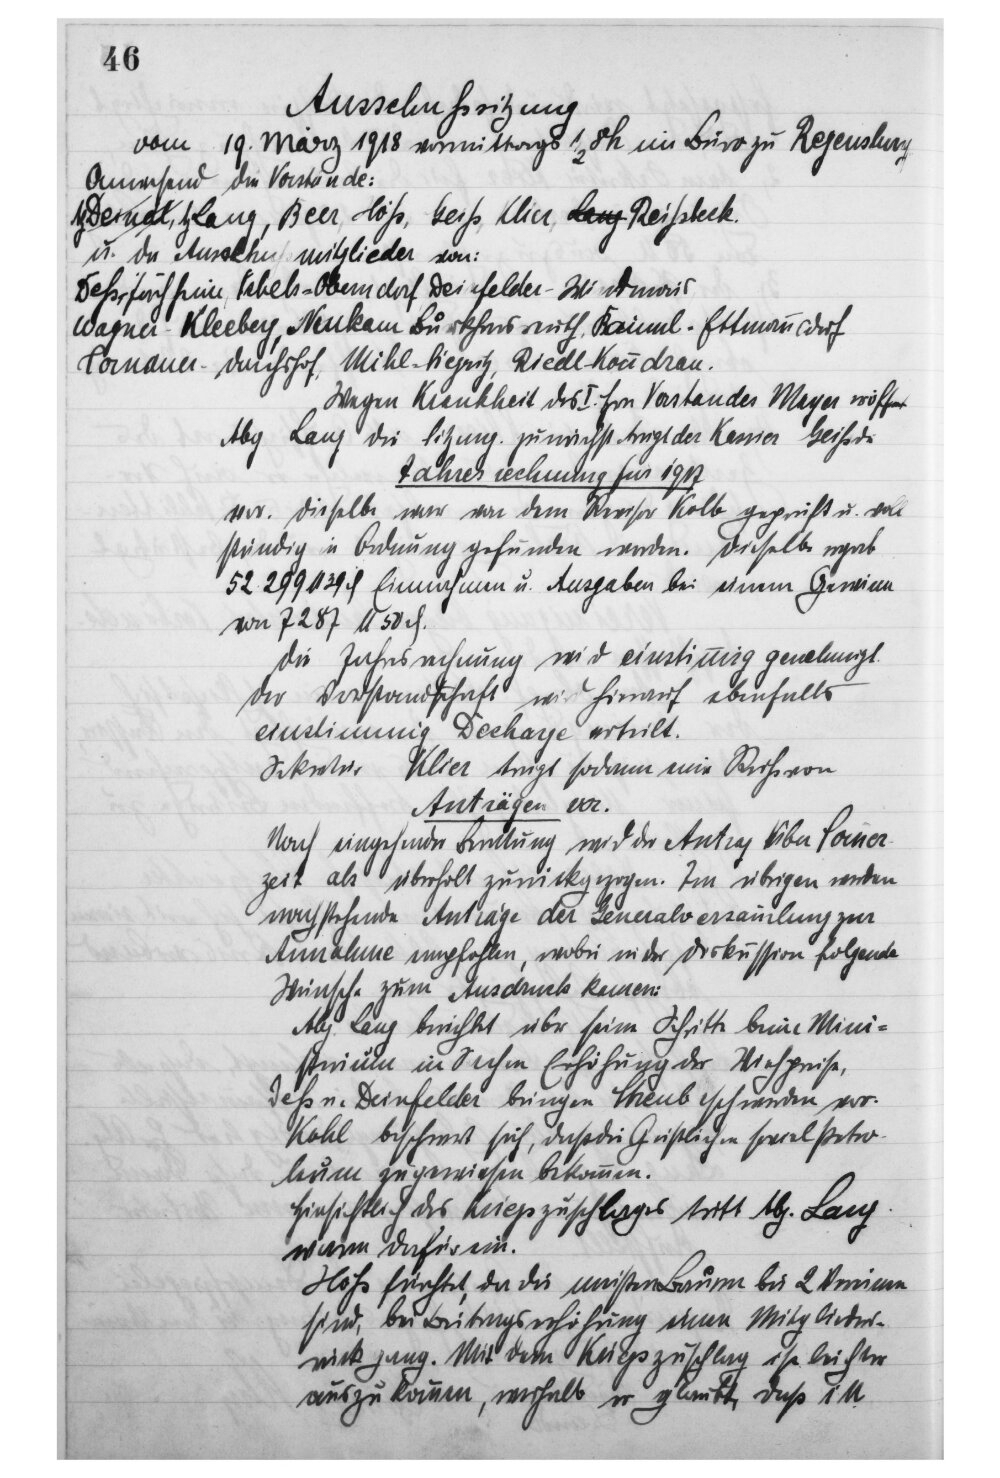 46
Ausschußsitzung
vom 19. März 1918 vormittags ½8h im Büro zu Regensburg
Anwesend die Vorstände:
Lang, Beer, Höß, Geiß, Klier, Lang Reißbeck.
u. die Ausschußmitglieder von:
Oberndorf Deinfelder - Windmais
Wagner - Kleeberg, Neukam Burkhardsreuth, Ettmannsdorf
Riedl-Kondrau.
Wegen Krankheit des I. Hrn Vorstandes Mayer eröffnet
Abg Lang die Sitzung. zunächst trägt der Kassier Geiß die
Jahresrechnung für 1917
vor. Dieselbe war von dem Revisor Kolb geprüft u. voll
ständig in Ordnung gefunden worden. Dieselbe ergab
52 299 M 39 ₰ Einnahmen u. Ausgaben bei einem Gewinn
von 7287 M 50 ₰.
Die Jahresrechnung wird einstimmig genehmigt.
Der Vorstandschaft wird hierauf ebenfalls
einstimmig Decharge erteilt.
Sekretär Klier trägt sodann eine Reihe von
Anträgen vor.
Nach eingehender Beratung wird der Antrag über Somer-
zeit als überholt zurückgezogen. Im übrigen werden
nachstehende Anträge der Generalversamlung zur
Annahme empfohlen, wobei in der Diskussion folgende
Wünsche zum Ausdruck kamen:
Abg. Lang berichtet über seine Schritte beim Mini=
sterium in Sachen Erhöhung der Viehpreise,
Deß u. Deinfelder bringen beschwerden vor.
Kohl beschwert sich, daß die Geistlichen soviel Petro-
leum zugewiesen bekomen.
Hinsichtlich des Kriegszuschlages tritt Abg. Lang
warm dafür ein.
Höß fürchtet, da die meisten Bauern bei 2 Vereinen
sind, bei Beitragserhöhung einen Mitglieder-
rückgang. Mit dem Kriegszuschlag ist leichter
auszukomen, weshalb er glaubt, daß 1 M.